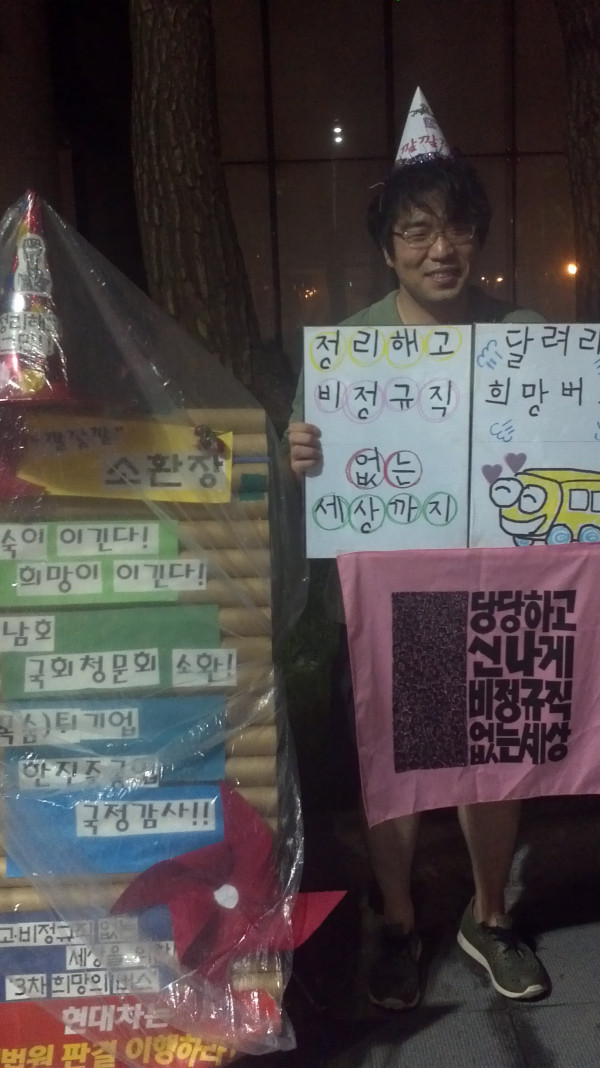 깔깔깔
정리해고
비정규직
없는
세상까지
달려라
희망버
당당하고
신나게
비정규직
없는세상
"깔깔깔"
소환장
이 이긴다!
희망이 이긴다!
남호
국회청문회 소환!
튀기업
한진중공업
국정감사!!
고·비정규직 없는
세상을 위한
3차 희망의 버스
현대차는
법원 판결 이행하라!